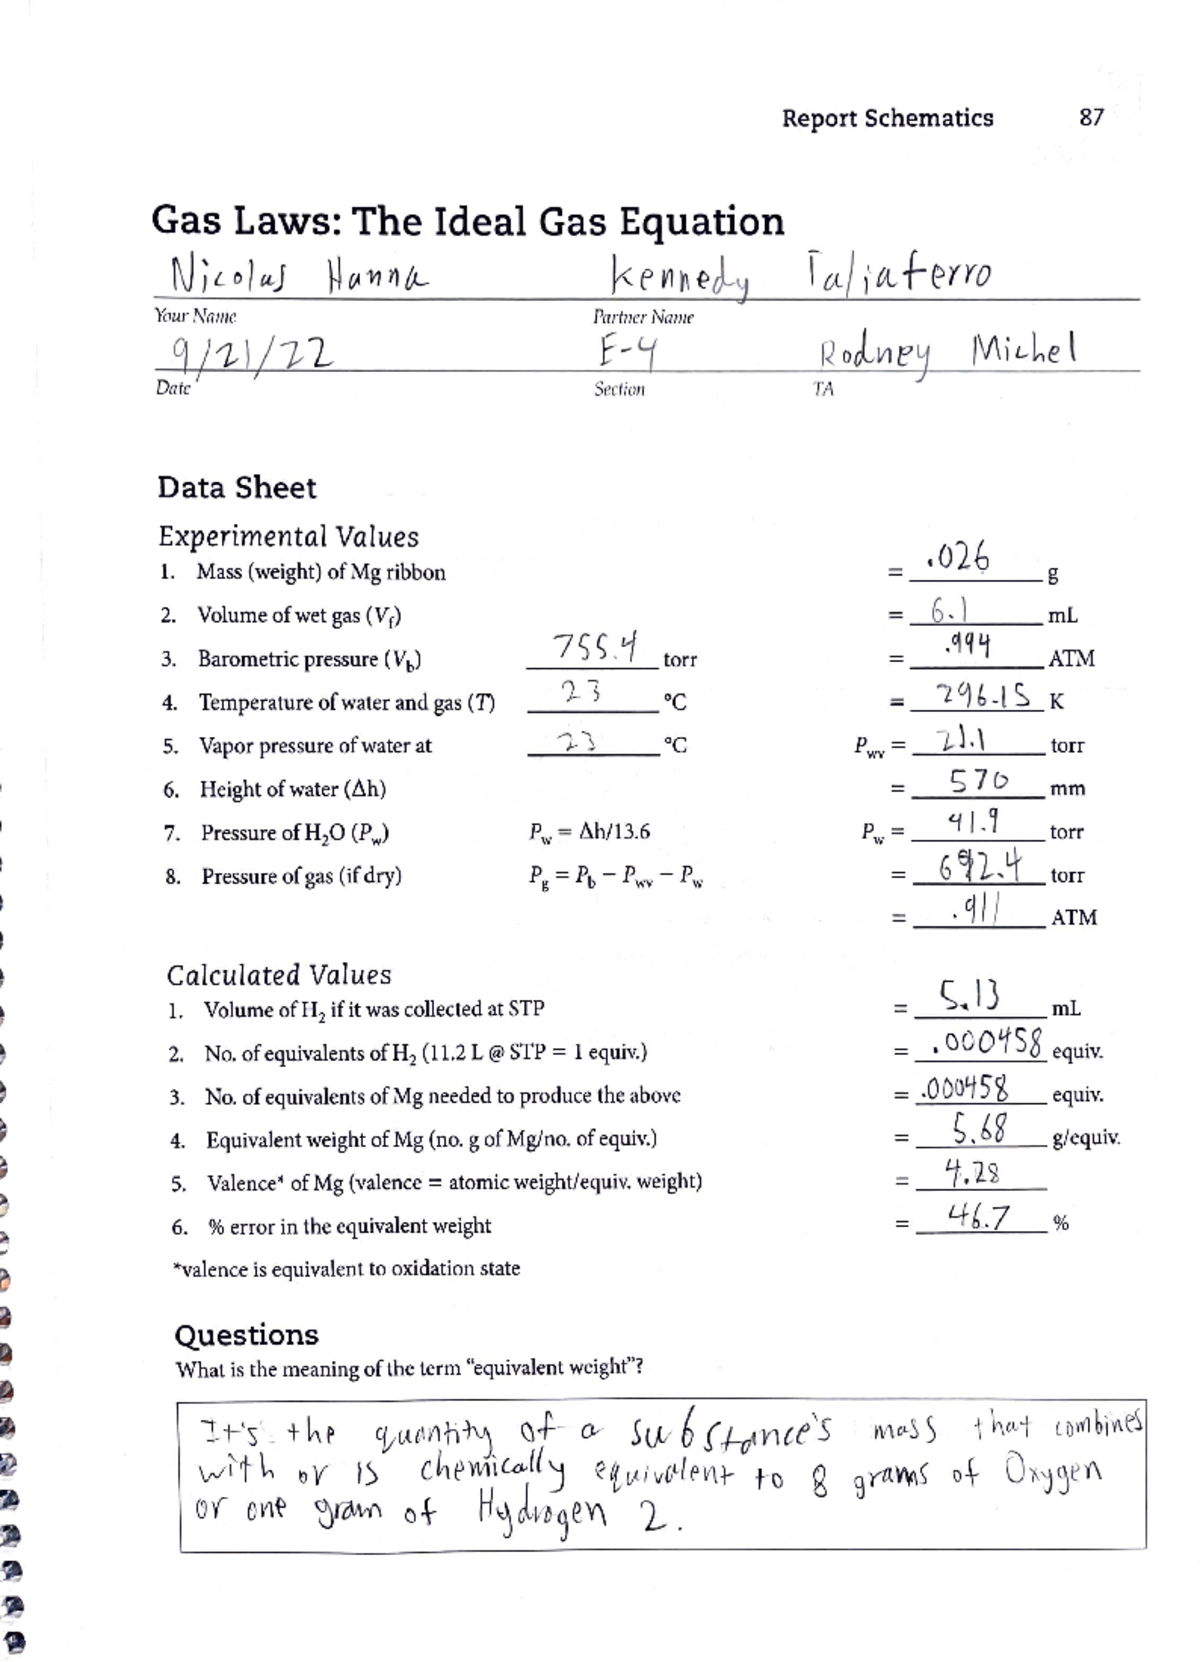 Report Schematics 87
Gas Laws: The Ideal Gas Equation
Nicolas Hanna Kennedy Taliaferro
Your Name Partner Name
9/21/22 E-4 Rodney Michel
Date Section TA
Data Sheet
Experimental Values
1. Mass (weight) of Mg ribbon = .026 g
2. Volume of wet gas (Vf) = 6.1 mL
3. Barometric pressure (Vb) 755.4 torr = .994 ATM
4. Temperature of water and gas (T) 23 °C = 296.15 K
5. Vapor pressure of water at 23 °C Pwv = 21.1 torr
6. Height of water (Δh) = 570 mm
7. Pressure of H₂O (Pw) Pw = Δh/13.6 Pw = 41.9 torr
8. Pressure of gas (if dry) Pg = Pb − Pwv − Pw = 692.4 torr
= .911 ATM
Calculated Values
1. Volume of H₂ if it was collected at STP = 5.13 mL
2. No. of equivalents of H₂ (11.2 L @ STP = 1 equiv.) = .000458 equiv.
3. No. of equivalents of Mg needed to produce the above = .000458 equiv.
4. Equivalent weight of Mg (no. g of Mg/no. of equiv.) = 5.68 g/equiv.
5. Valence* of Mg (valence = atomic weight/equiv. weight) = 4.28
6. % error in the equivalent weight = 46.7 %
*valence is equivalent to oxidation state
Questions
What is the meaning of the term “equivalent weight”?
It's the quantity of a substance's mass that combines
with or is chemically equivalent to 8 grams of Oxygen
or one gram of Hydrogen 2.